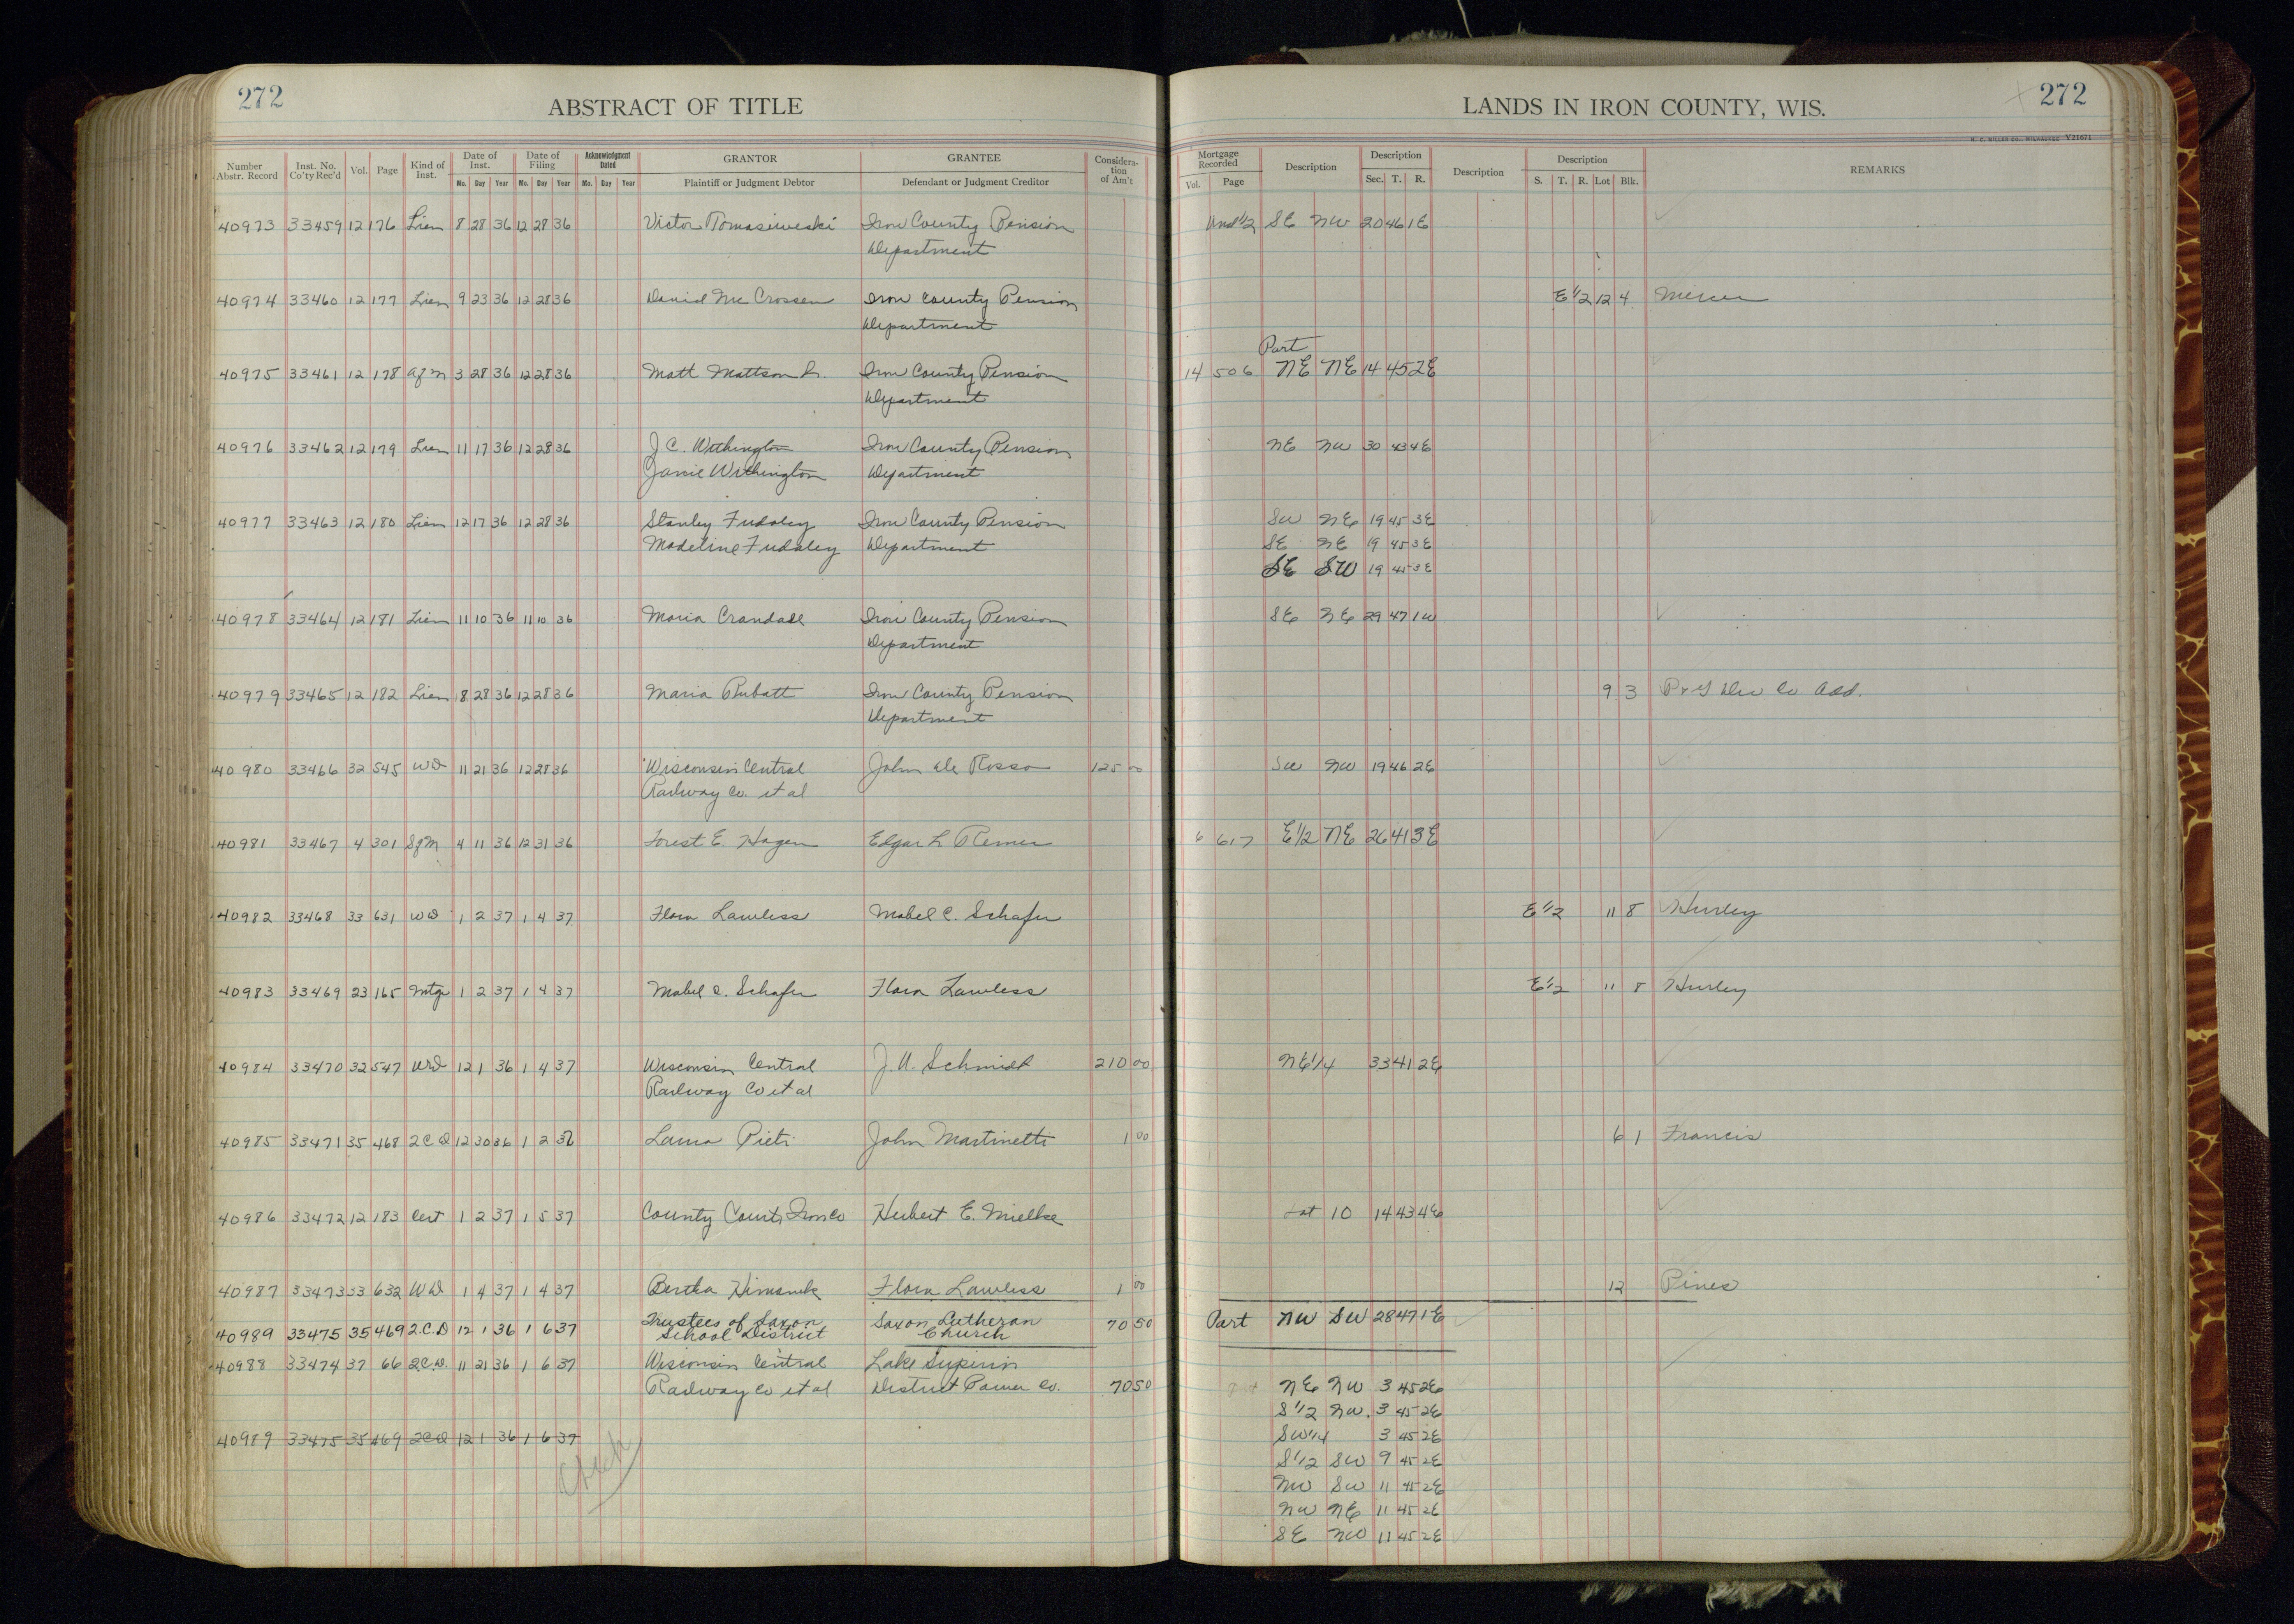 272
ABSTRACT OF TITLE
LANDS IN IRON COUNTY, WIS.
272
H. C. MILLER CO., MILWAUKEE V21671
Number Abstr. Record | Inst. No. Co'ty Rec'd | Vol. | Page | Kind of Inst. | Date of Inst. Mo. Day Year | Date of Filing Mo. Day Year | Acknowledgment Dated Mo. Day Year | GRANTOR Plaintiff or Judgment Debtor | GRANTEE Defendant or Judgment Creditor | Consideration of Am't | Mortgage Recorded Vol. Page | Description | Description Sec. T. R. | Description | Description S. T. R. Lot Blk. | REMARKS
40973 33459 12 176 Lien 8 28 36 12 28 36 Victor Tomasiweski Iron County Pension Und 1/2 SE NW 20 46 1E
Department
40974 33460 12 177 Lien 9 23 36 12 28 36 David McCrossen Iron County Pension E 1/2 12 4 Mercer
Department
Part
40975 33461 12 178 Af M 3 28 36 12 28 36 Matt Mattson Iron County Pension 14 506 NE NE 14 45 2E
Department
40976 33462 12 179 Lien 11 17 36 12 28 36 J C. Withington Iron County Pension NE NW 30 43 4E
Janie Withington Department
40977 33463 12 180 Lien 12 17 36 12 28 36 Stanley Fudaley Iron County Pension SW NE 19 45 3E
Madeline Fudaley Department SE NE 19 45 3E
SE SW 19 45 3E
40978 33464 12 181 Lien 11 10 36 11 10 36 Maria Crandall Iron County Pension SE NE 29 47 1W
Department
40979 33465 12 182 Lien 8 28 36 12 28 36 Maria Rubatt Iron County Pension 9 3 Co Add.
Department
40980 33466 32 545 WD 11 21 36 12 28 36 Wisconsin Central John De Rosso 125 00 SW NW 19 46 2E
Railway Co. et al
40981 33467 4 301 Sf M 4 11 36 12 31 36 Forest E. Hagen Edgar L Remer 6 617 E 1/2 NE 26 41 3E
40982 33468 33 631 WD 1 2 37 1 4 37 Flora Lawless Mabel C. Schafer E 1/2 11 8 Hurley
40983 33469 23 165 Mtge 1 2 37 1 4 37 Mabel C. Schafer Flora Lawless E 1/2 11 8 Hurley
40984 33470 32 547 WD 12 1 36 1 4 37 Wisconsin Central J. A. Schmidt 210 00 NE 1/4 33 41 2E
Railway Co et al
40985 33471 35 468 2 C D 12 30 36 1 2 36 Laura Pieti John Martinetti 1 00 6 1 Francis
40986 33472 12 183 Cert 1 2 37 1 5 37 County Court Iron Co Hubert E. Mielke Lot 10 14 43 4E
40987 33473 33 632 WD 1 4 37 1 4 37 Bertha Flora Lawless 1 00 12 Pines
40989 33475 35 469 2.C.D 12 1 36 1 6 37 Trustees of Saxon School District Saxon Lutheran Church 70 50 Part NW SW 28 47 1E
40988 33474 37 66 2.C.D. 11 21 36 1 6 37 Wisconsin Central Lake Superior
Railway Co et al District Power Co. 70 50 Part NE NW 3 45 2E
S 1/2 NW. 3 45 2E
40989 33475 35 469 2CD 12 1 36 1 6 37 SW 1/4 3 45 2E
S 1/2 SW 9 45 2E
NW SW 11 45 2E
NW NE 11 45 2E
SE NW 11 45 2E